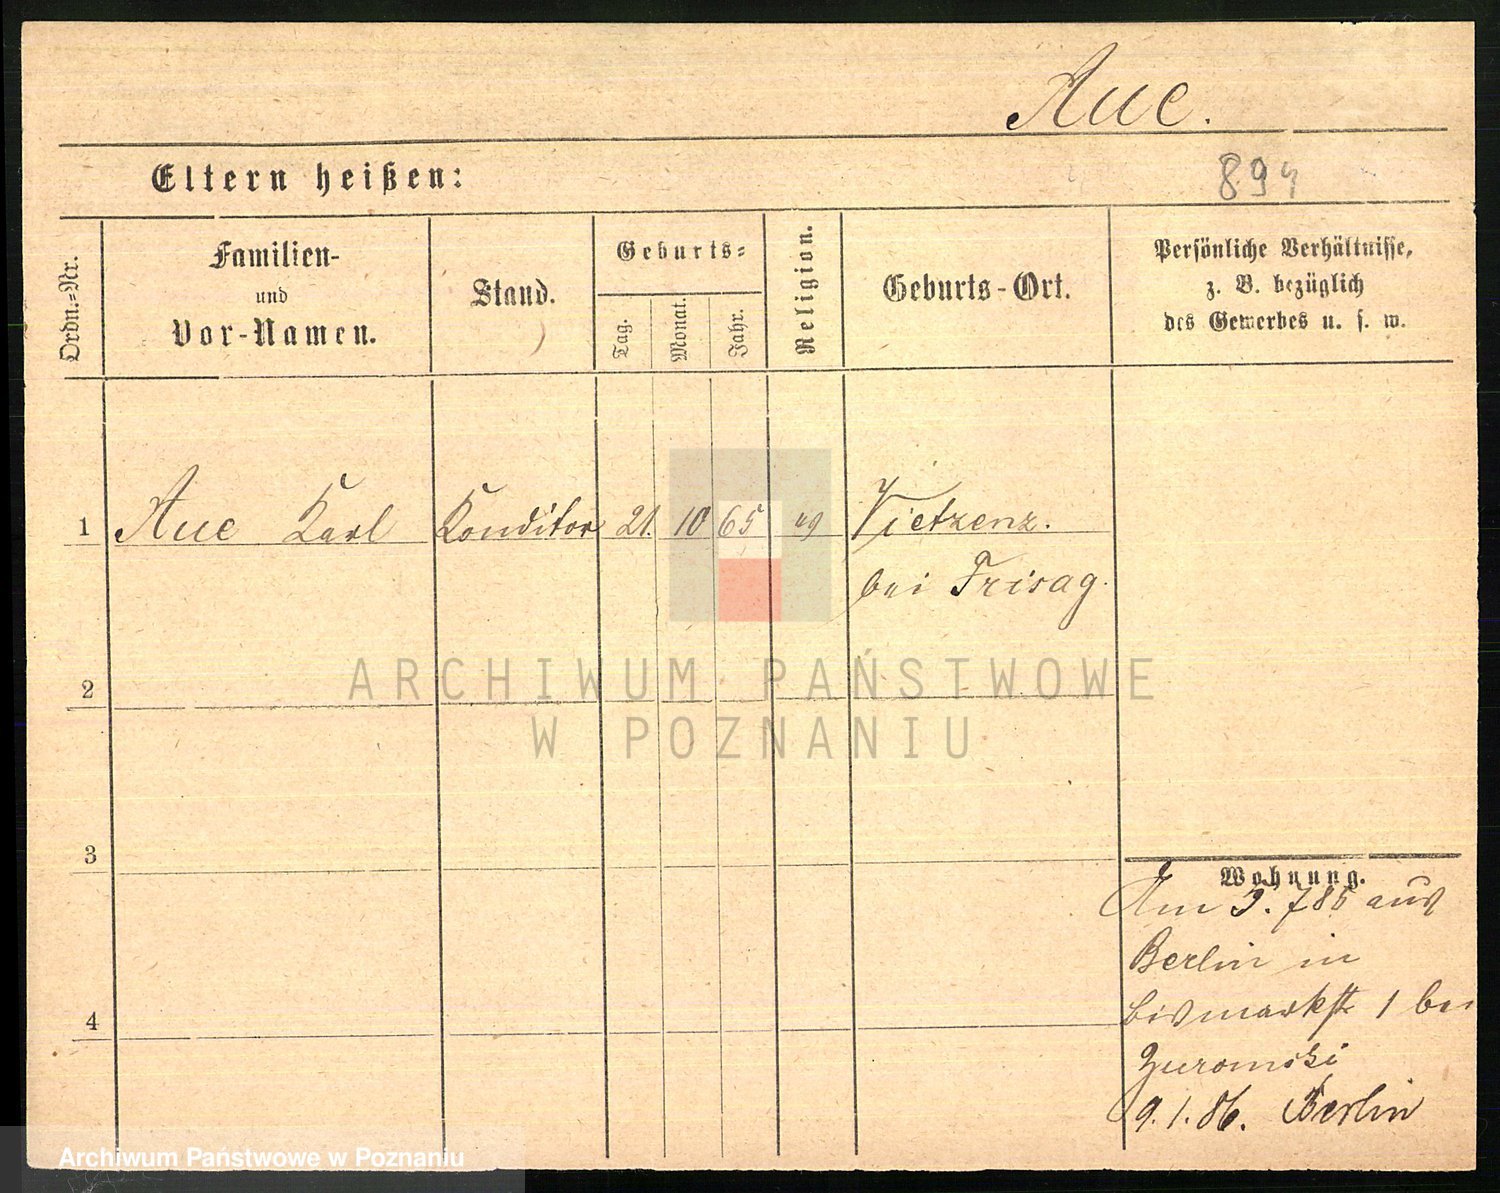 Aue.
Eltern heißen:
894
Ordn.-Nr.
Familien-
und
Vor-Namen.
Stand.
Geburts-
Tag.
Monat.
Jahr.
Religion.
Geburts-Ort.
Persönliche Verhältnisse,
z. B. bezüglich
des Gewerbes u. s. w.
1 Aue Karl Konditor 21. 10 65 Vietzenz.
bei Frisag.
ARCHIWUM PAŃSTWOWE
W POZNANIU
2
3
4
Wohnung.
Am 3. 7 85 aus
Berlin in
Bismarkstr 1 bei
Zuromski
9.1.86. Berlin
Archiwum Państwowe w Poznaniu